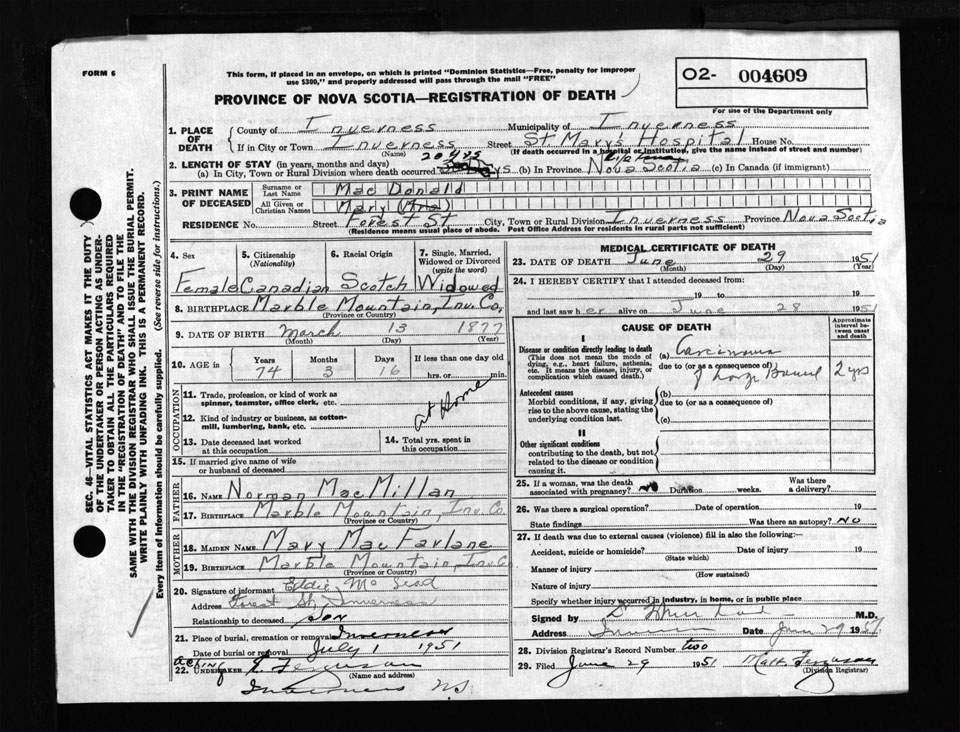 FORM 6
This form, if placed in an envelope, on which is printed "Dominion Statistics—Free, penalty for improper
use $300," and properly addressed will pass through the mail "FREE"
O2- 004609
PROVINCE OF NOVA SCOTIA—REGISTRATION OF DEATH
For use of the Department only
1. PLACE OF DEATH
County of Inverness Municipality of Inverness
If in City or Town Inverness Street St Mary's Hospital House No.
(Name) (If death occurred in a hospital or institution, give the name instead of street and number)
2. LENGTH OF STAY (in years, months and days) 20 yrs Lifetime
(a) In City, Town or Rural Division where death occurred (b) In Province Nova Scotia (c) In Canada (if immigrant)
3. PRINT NAME OF DECEASED
Surname or Last Name Mac Donald
All Given or Christian Names Mary (Mrs)
RESIDENCE No. Street Forest St City, Town or Rural Division Inverness Province Nova Scotia
(Residence means usual place of abode. Post Office Address for residents in rural parts not sufficient)
4. Sex 5. Citizenship (Nationality) 6. Racial Origin 7. Single, Married, Widowed or Divorced (write the word)
Female Canadian Scotch Widowed
8. BIRTHPLACE Marble Mountain, Inv. Co,
(Province or Country)
9. DATE OF BIRTH March 13 1877
(Month) (Day) (Year)
10. AGE in Years Months Days If less than one day old
74 3 16 hrs. or min.
OCCUPATION
11. Trade, profession, or kind of work as
spinner, teamster, office clerk, etc.
at Home
12. Kind of industry or business, as cotton-
mill, lumbering, bank, etc.
13. Date deceased last worked
at this occupation
14. Total yrs. spent in
this occupation
15. If married give name of wife
or husband of deceased
FATHER
16. NAME Norman MacMillan
17. BIRTHPLACE Marble Mountain, Inv. Co
(Province or Country)
MOTHER
18. MAIDEN NAME Mary MacFarlane
19. BIRTHPLACE Marble Mountain, Inv. Co.
(Province or Country)
20. Signature of informant Eddie McLeod
Address Forest St, Inverness
Relationship to deceased Son
21. Place of burial, cremation or removal Inverness
Date of burial or removal July 1 1951
Acting
22. UNDERTAKER Ferguson
(Name and address)
Inverness N.S.
MEDICAL CERTIFICATE OF DEATH
23. DATE OF DEATH June 29 1951
(Month) (Day) (Year)
24. I HEREBY CERTIFY that I attended deceased from:
19 to 19
and last saw her alive on June 28 1951
CAUSE OF DEATH
Approximate interval between onset and death
I
Disease or condition directly leading to death (a) Carcinoma
(This does not mean the mode of
dying, e.g., heart failure, asthenia,
etc. It means the disease, injury, or
complication which caused death.)
due to (or as a consequence of)
of Large Bowel 2 yrs
Antecedent causes (b)
Morbid conditions, if any, giving
rise to the above cause, stating the
underlying condition last.
due to (or as a consequence of)
(c)
II
Other significant conditions
contributing to the death, but not
related to the disease or condition
causing it.
25. If a woman, was the death
associated with pregnancy? no Duration weeks. Was there
a delivery?
26. Was there a surgical operation? Date of operation 19
State findings Was there an autopsy? NO
27. If death was due to external causes (violence) fill in also the following:—
Accident, suicide or homicide? Date of injury 19
(State which)
Manner of injury
(How sustained)
Nature of injury
Specify whether injury occurred in industry, in home, or in public place
Signed by M.D.
Address Date June 29 1951
28. Division Registrar's Record Number two
29. Filed June 29 1951 Ferguson
(Division Registrar)
SEC. 46—VITAL STATISTICS ACT MAKES IT THE DUTY
OF THE UNDERTAKER OR PERSON ACTING AS UNDER-
TAKER TO OBTAIN ALL THE PARTICULARS REQUIRED
IN THE "REGISTRATION OF DEATH" AND TO FILE THE
SAME WITH THE DIVISION REGISTRAR WHO SHALL ISSUE THE BURIAL PERMIT.
WRITE PLAINLY WITH UNFADING INK. THIS IS A PERMANENT RECORD.
Every item of information should be carefully supplied. (See reverse side for instructions.)